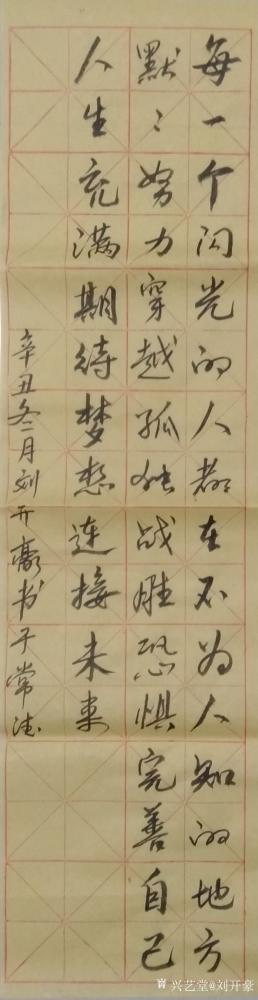 每一个闪光的人都在不为人知的地方
默々努力穿越孤独战胜恐惧完善自己
人生充满期待梦想连接未来
辛丑冬二月刘开豪书于常德
兴艺堂@刘开豪